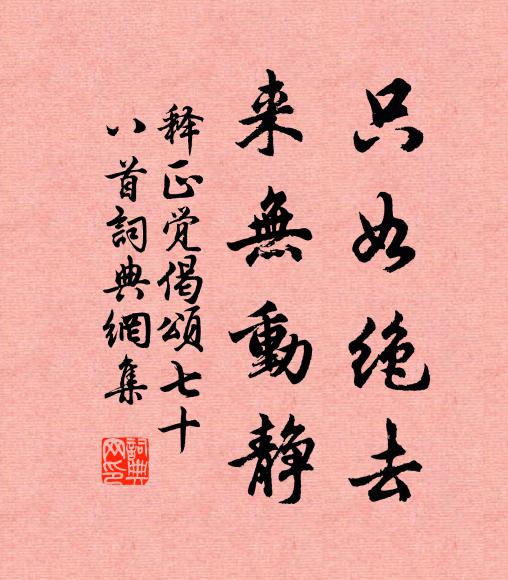 只如绝去
来無動静
释正觉偈頌七十
八首詞典網集
詞典网印